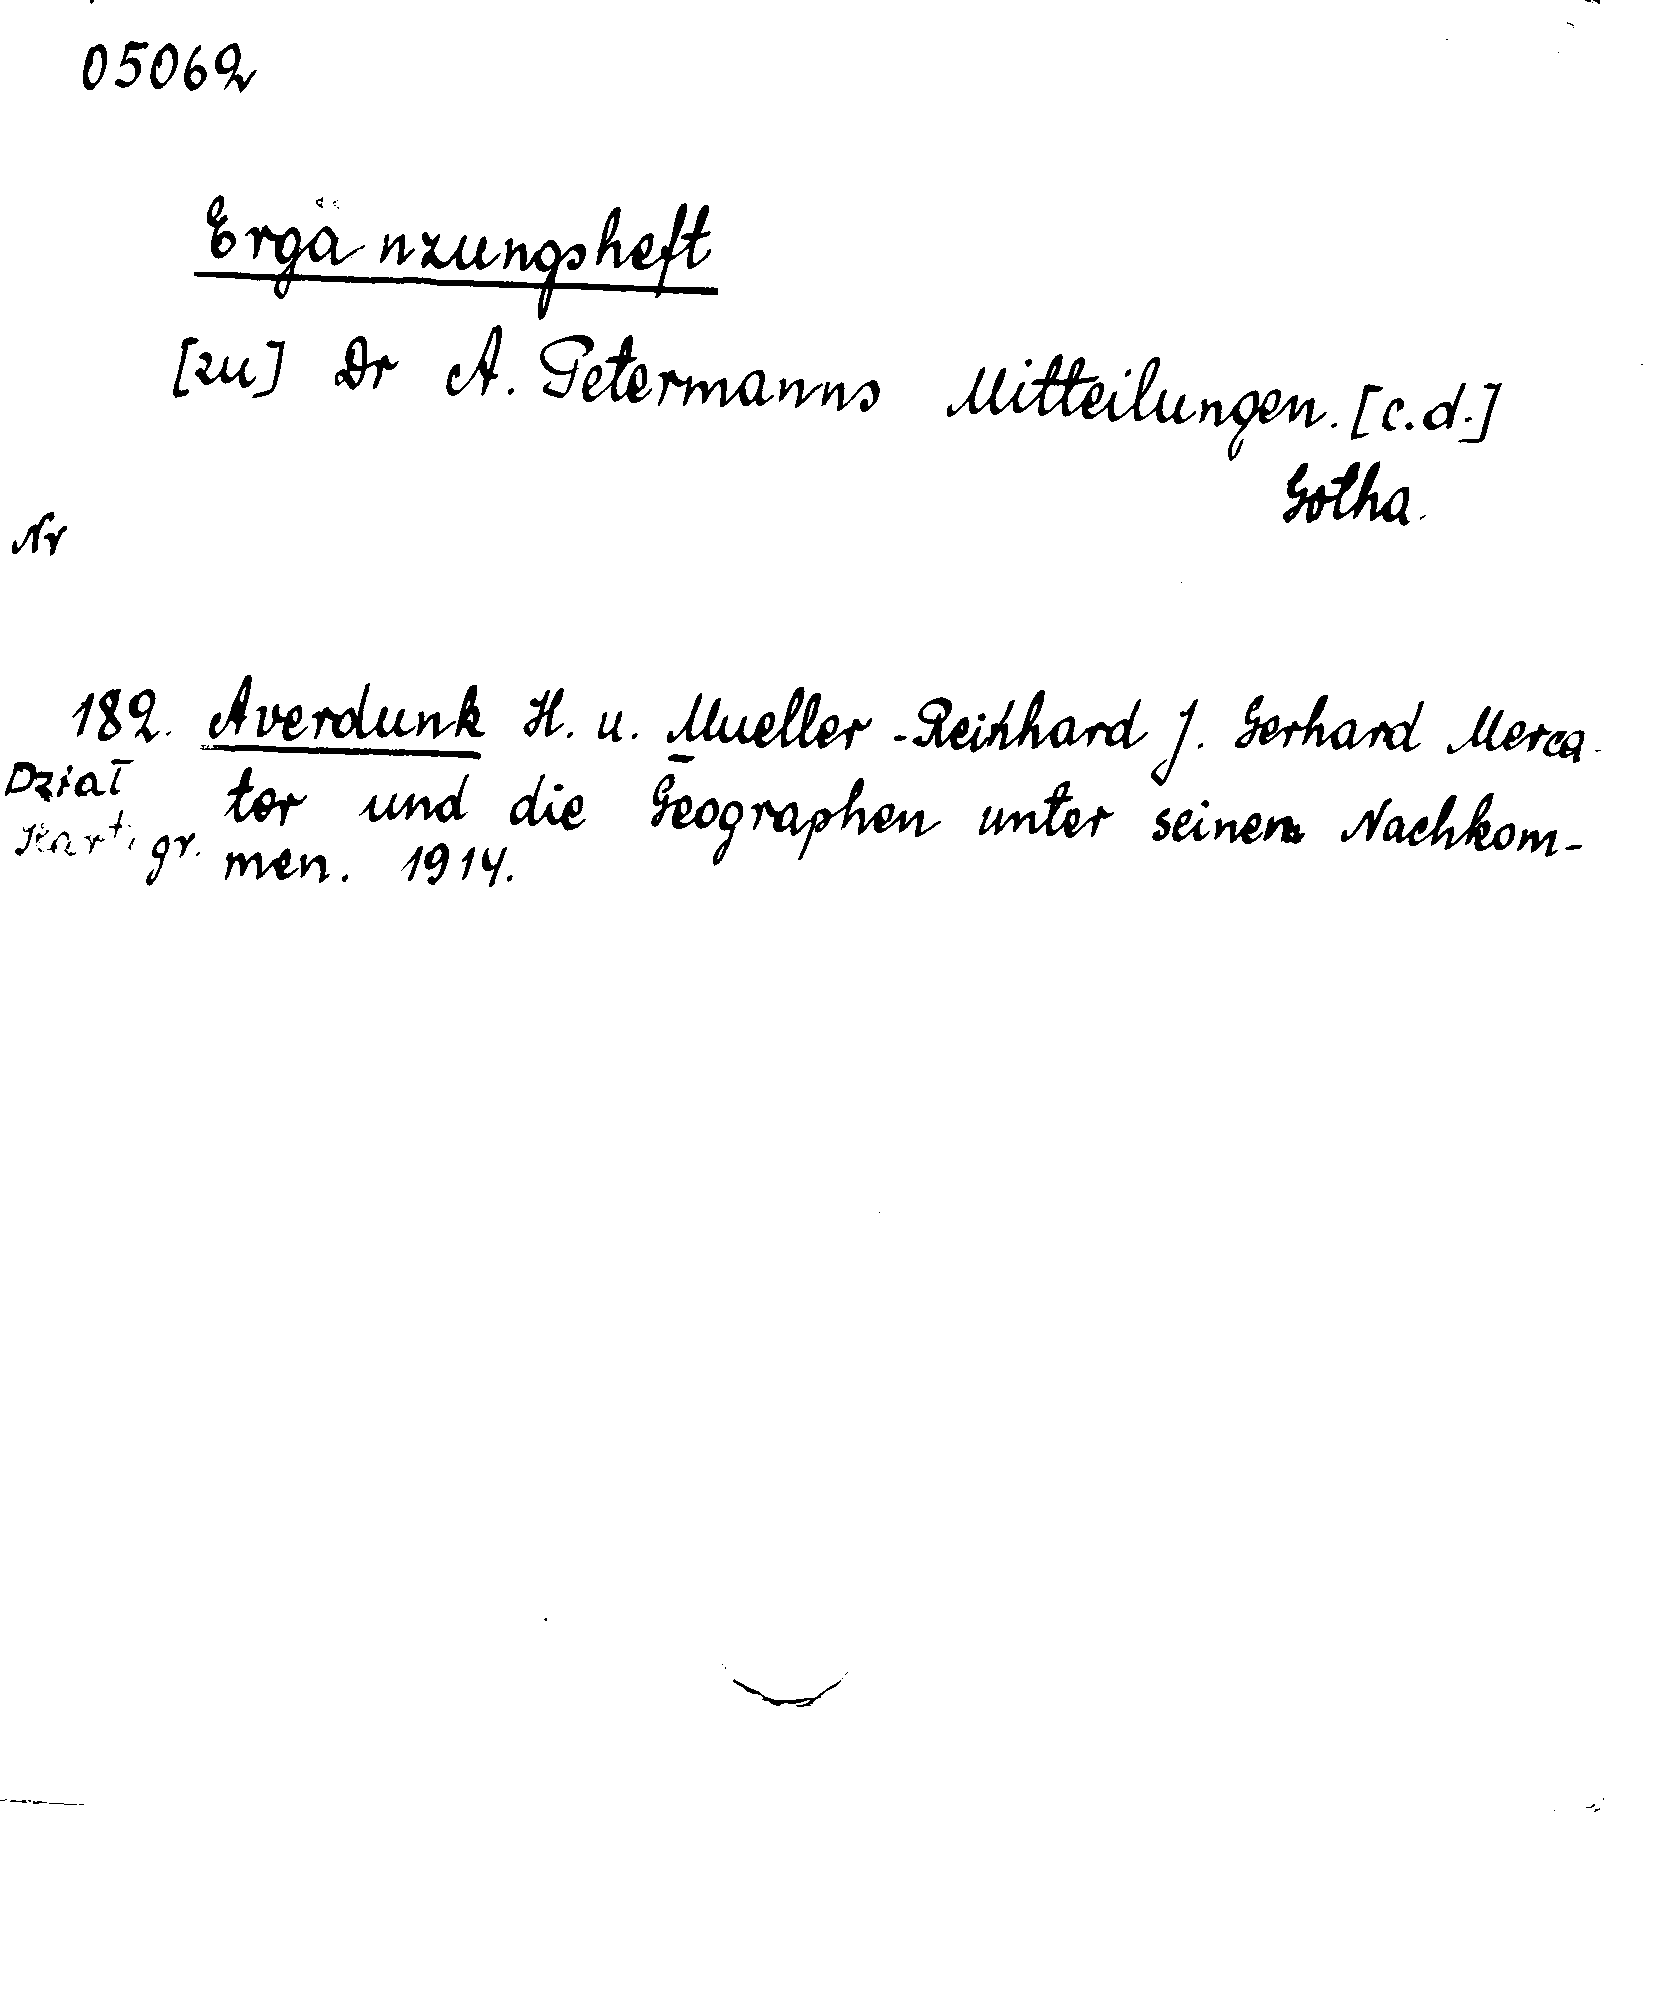 05062
Ergänzungsheft
[zu] Dr A. Petermanns Mitteilungen. [c.d.]
Gotha.
Nr
182. Averdunk H. u. Mueller-Reinhard J. Gerhard Merca-
Dział tor und die Geographen unter seinen Nachkom-
Kart. gr. men. 1914.